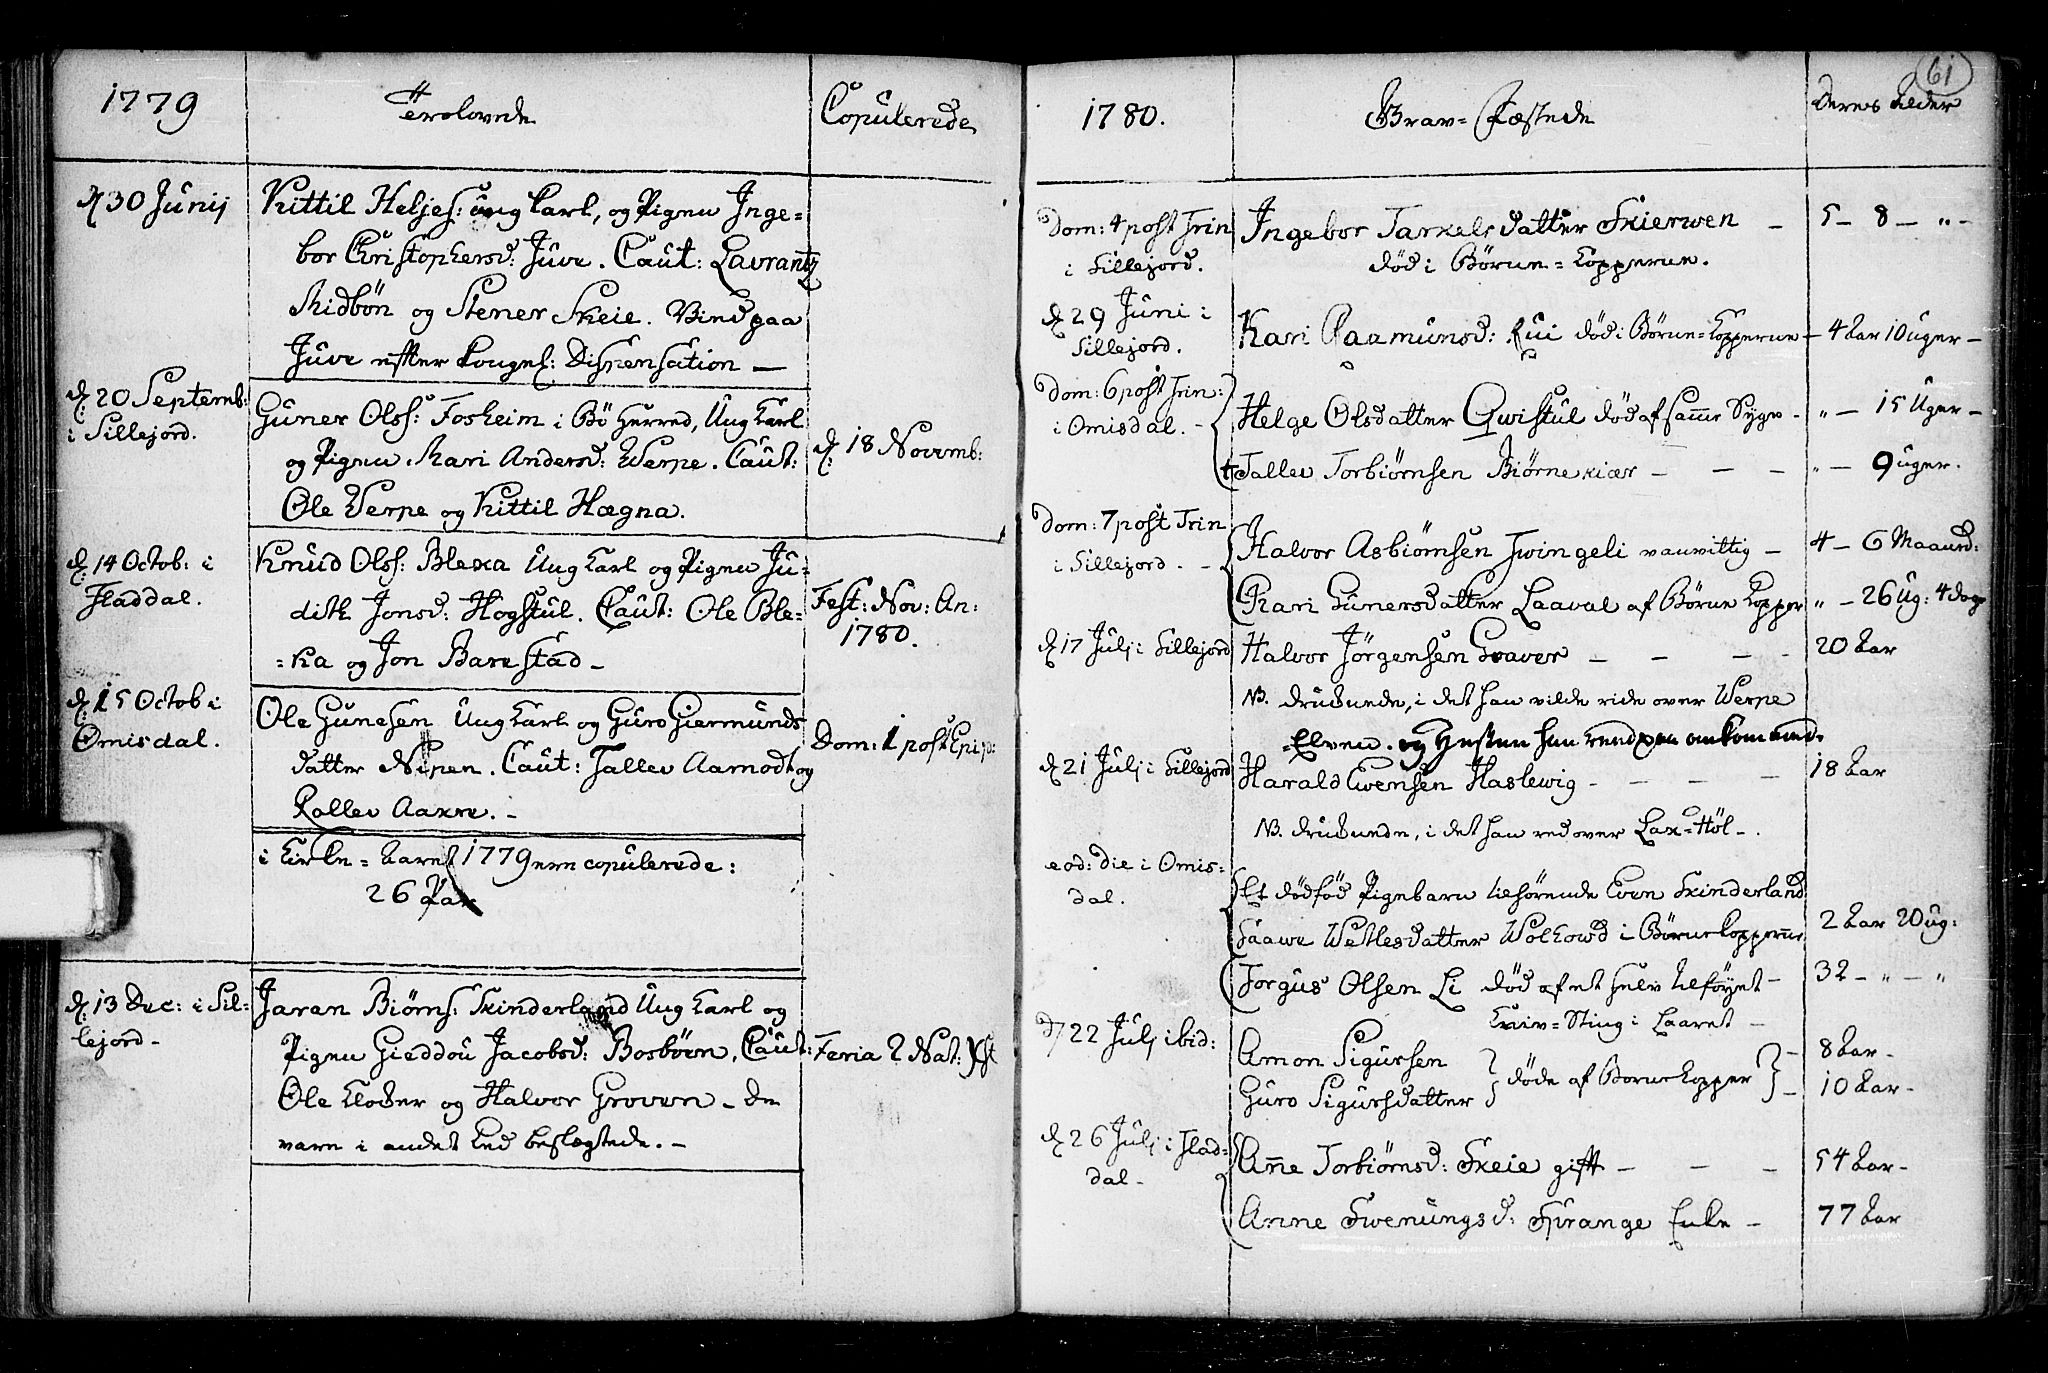 1779
Trolovede
Copulerede
d 30 Junij
Kittil Heljes: ung karl, og Pigen Inge=
bor Christophersd: Juve. Caut: Lavrantz
Midbön og Stener Skeie. Viind paa
Juve efter kongel: Dispensation —
d: 20 Septemb:
i Sillejord.
Guner Olss: Fosheim i Bö Herred, Ung Karl
og Pigen Mari Andersd: Werpe. Caut:
Ole Verpe og Kittil Hægna.
d: 18 Novemb:
d: 14 Octob: i
Fladdal.
Knud Olss: Bleka Ung Karl og Pigen Ju=
dith Jonsd: Hogstul. Caut: Ole Ble=
=ka og Jon Barestad -
Fest: Nov: An:
1780.
d: 15 Octob i
Omisdal.
Ole Gunesen Ung Karl og Guro Giermunds
datter Nipen. Caut: Tallev Aamodt og
Rollev Aakre. -
Dom: 1 post Epip:
i Kirke=Aaret 1779 ere copulerede:
26 Par
d: 13 Dec: i Sil=
lejord-
Jaran Biörns: Skinderland Ung Karl og
Pigen Gieddou Jacobsd: Bosbörn. Caut:
Ole Klocker og Halvor Groven - De
vare i andet Led beslegtede. -
Feria 2 Nat: Xti
61
1780.
Grav=Fæstede
Deres Alder
Dom: 4 post Trin
i Sillejord.
Ingebor Tarkelsdatter Skierwen — 5 - 8 - " -
död i Börne=Kopperne.
d: 29 Juni i
Sillejord.
Kari Aamunsd: Rui död i Börne=Kopperne - 4 Aar 10 uger -
Dom: 6 post Trin:
i Omisdal. -
Helge Olsdatter Qwistul död af same Syge - " - 15 Uger -
Tallev Torbiörnsen Biörnekiær - - - " - 9 uger.
Dom: 7 post Trin
i Sillejord. -
Halvor Asbiörnsen Twingeli vanvittig - 4 - 6 Maaned:
Kari Gunersdatter Laaval af Börne Kopper " - 26 Ug: 4 dage
d: 17 Julj i Sillejord
Halvor Jörgensen Graver - - - - 20 Aar
NB. druknede, i det han vilde ride over Werpe
=Elven. og Hesten han reed paa omkom med.
d: 21 Julj i Sillejord
Harald Evensen Haslewig - - - - 18 Aar
NB. druknede, i det han red over Lax=Höl-.
eod: die i Omis=
dal.
Et dödföd Pigebarn tilhörende Even Skinderland
Saawe Wetlesdatter Wolkowd i Börnekopperne 2 Aar 20 ug:
Torgus Olsen Li död af et Selv tilföyet - 32 - " - "
Kniv=Sting i Laaret -
d 22 Julj ibid:
Amon Sigursen
Guro Sigursdatter
döde af Börnekopper
8 Aar -
10 Aar -
d: 26 Julj i Flad=
dal-
Anne Torbiörnsd: Skeie gift - - - 54 Aar -
Anne Swenungsd: Sprange Enke - 77 Aar